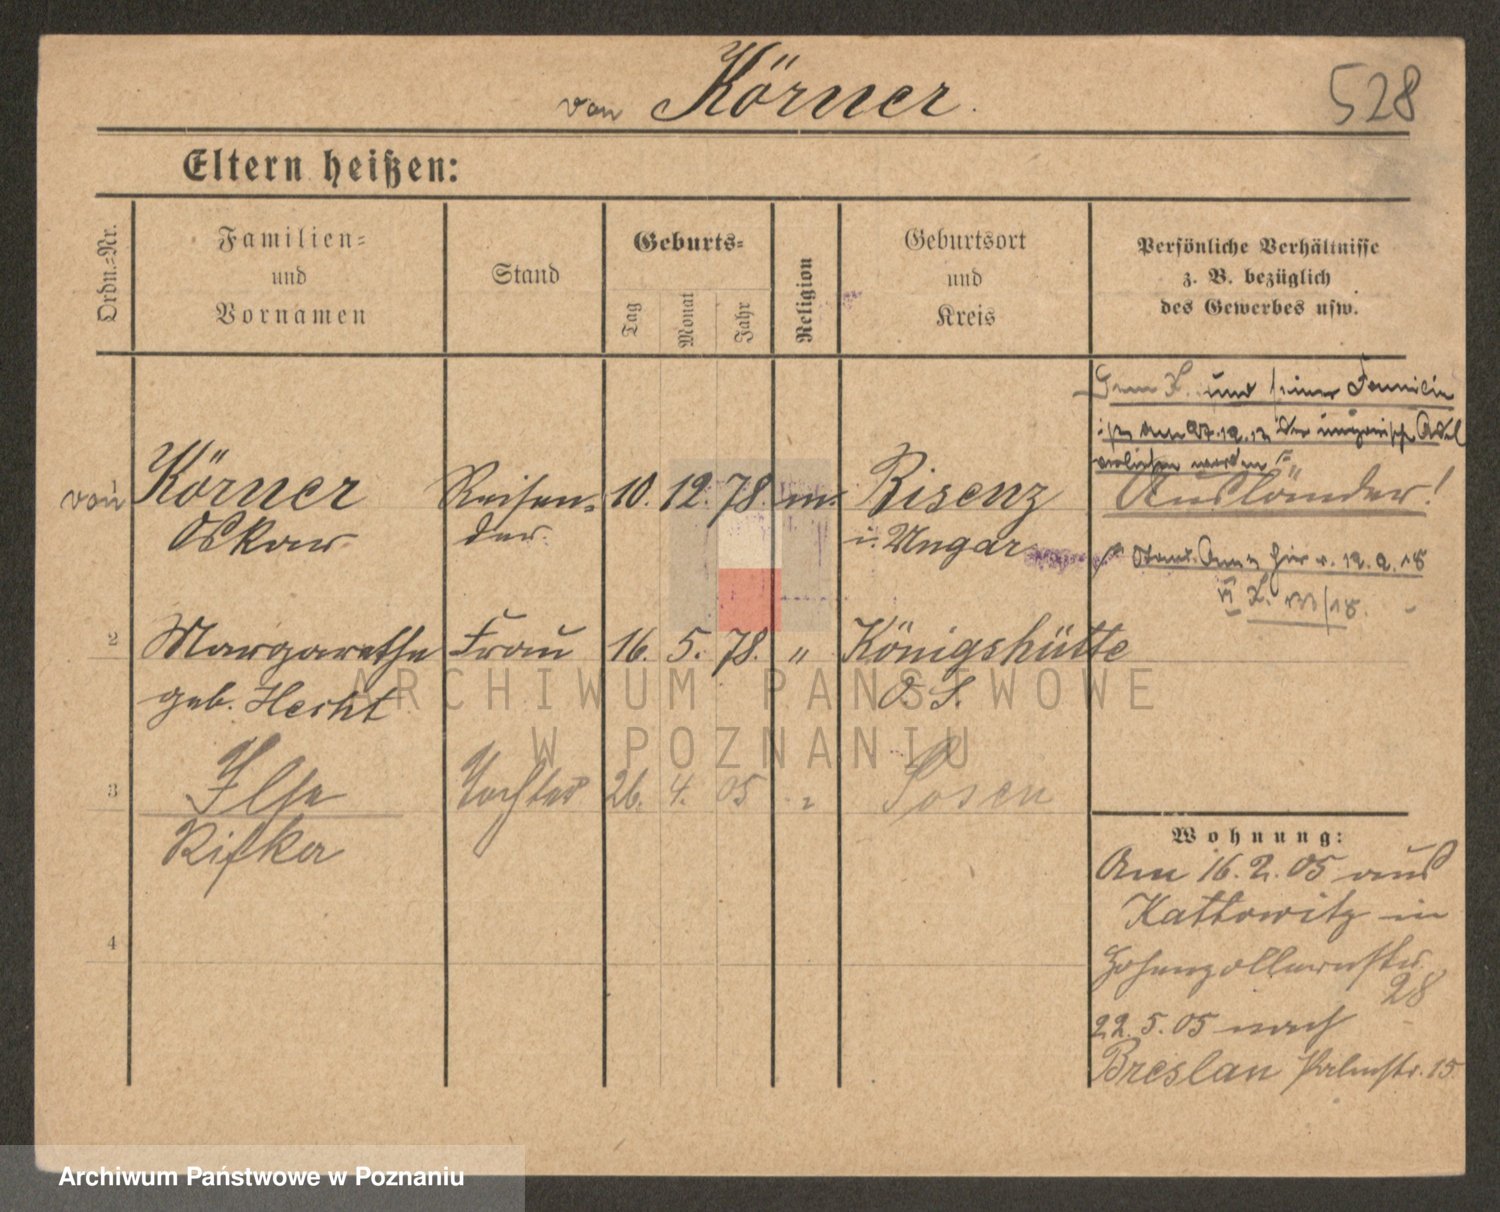 von Körner.
528
Eltern heißen:
Ordn.-Nr.
Familien-
und
Vornamen
Stand
Geburts-
Tag
Monat
Jahr
Religion
Geburtsort
und
Kreis
Persönliche Verhältnisse
z. B. bezüglich
des Gewerbes usw.
Dem K. und seiner Familie
ist am 27.12.12 der ungarische Adel
verliehen worden
Ausländer!
von Körner Reisen- 10. 12. 78. m. Risenz
Oskar der. i. Ungar
12. 2. 18
2 Margarethe Frau 16. 5. 78. " Königshütte
geb. Hecht O. S.
3 Ilse Tochter 26. 4. 05 " Posen
Rifka
4
Wohnung:
Am 16. 2. 05 aus
Kattowitz in
Hohenzollernstr.
28
22. 5. 05 nach
Breslau 15.
ARCHIWUM PAŃSTWOWE
W POZNANIU
Archiwum Państwowe w Poznaniu